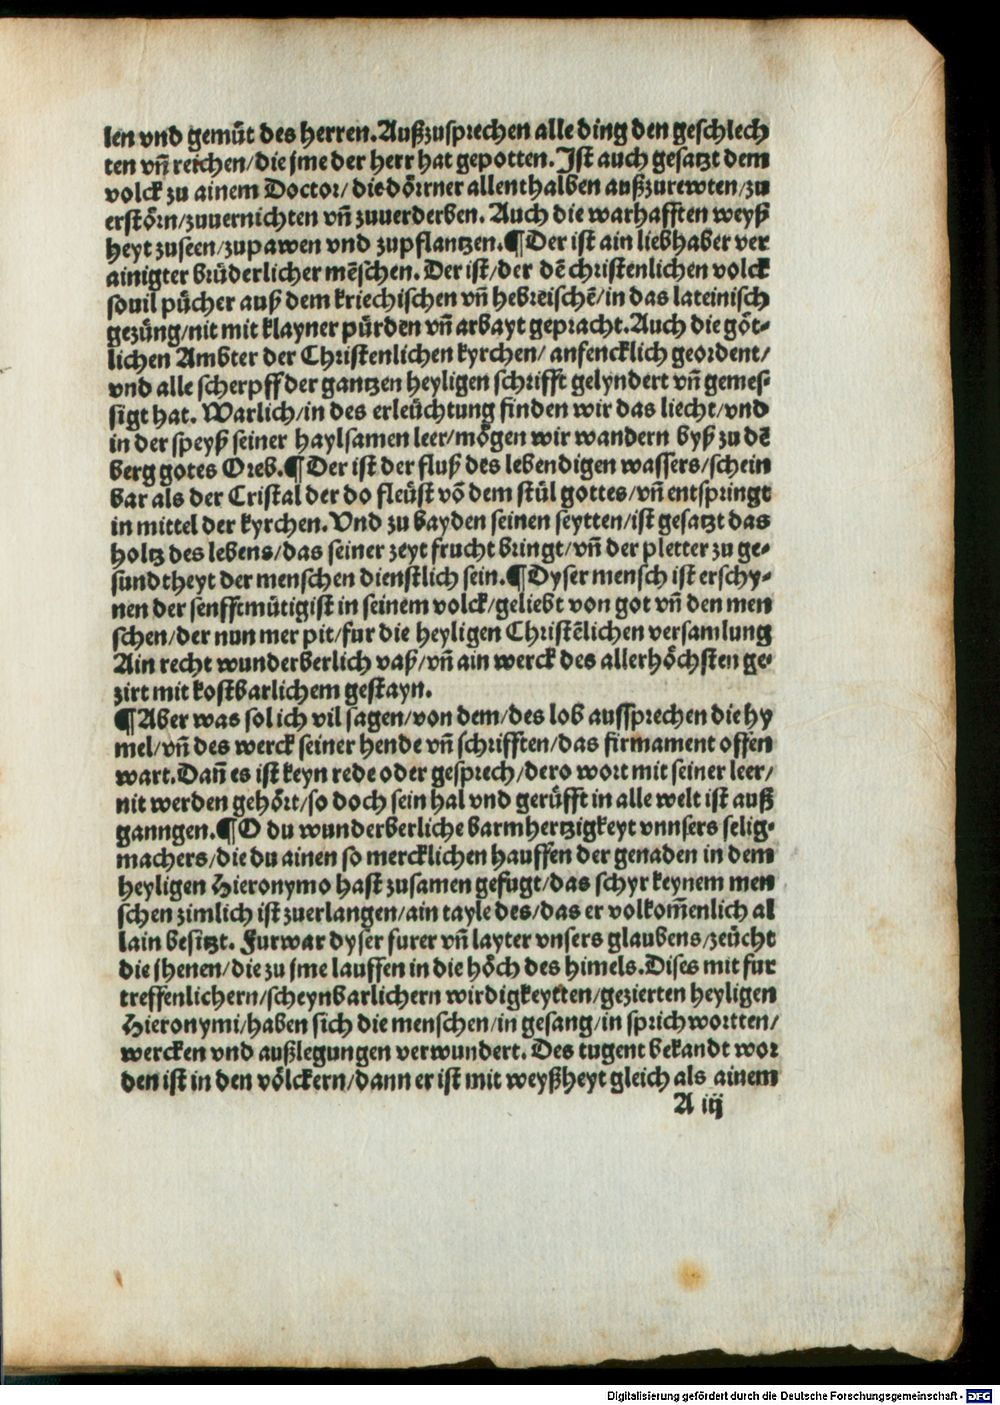 len vnd gemüt des herren. Außzusprechen alle ding den geschlech
ten vñ reichen/die jme der herr hat gepotten. Jst auch gesatzt dem
volck zu ainem Doctor/ die dörrner allenthalben außzurewten/zu
erstörn/zuuernichten vñ zuuerderben. Auch die warhafften weyß
heyt zuseen/zupawen vnd zupflantzen. ¶ Der ist ain liebhaber ver
ainigter brüderlicher mēschen. Der ist/der dē christenlichen volck
souil pücher auß dem kriechischen vñ hebreischē/in das lateinisch
gezüng/nit mit klayner pürden vñ arbayt gepracht. Auch die göt-
lichen Ambter der Christenlichen kyrchen/ anfencklich geordent/
vnd alle scherpff der gantzen heyligen schrifft gelyndert vñ gemes-
sigt hat. Warlich/in des erleüchtung finden wir das liecht/vnd
in der speyß seiner haylsamen leer/mögen wir wandern byß zu dē
berg gotes Oreb. ¶ Der ist der fluß des lebendigen wassers/schein
bar als der Cristal der do fleüst vō dem stül gottes/vñ entspringt
in mittel der kyrchen. Vnd zu bayden seinen seytten/ist gesatzt das
holtz des lebens/das seiner zeyt frucht bringt/vñ der pletter zu ge-
sundtheyt der menschen dienstlich sein. ¶ Dyser mensch ist erschy-
nen der senfftmütigist in seinem volck/geliebt von got vñ den men
schen/der nun mer pit/fur die heyligen Christēlichen versamlung
Ain recht wunderberlich vaß/vñ ain werck des allerhöchsten ge-
zirt mit kostbarlichem gestayn.
¶ Aber was sol ich vil sagen/von dem/des lob aussprechen die hy
mel/vñ des werck seiner hende vñ schrifften/das firmament offen
wart. Dañ es ist keyn rede oder gesprech/dero wort mit seiner leer/
nit werden gehört/so doch sein hal vnd gerüfft in alle welt ist auß
ganngen. ¶ O du wunderberliche barmhertzigkeyt vnnsers selig-
machers/die du ainen so mercklichen hauffen der genaden in dem
heyligen Hieronymo hast zusamen gefugt/das schyr keynem men
schen zimlich ist zuerlangen/ain tayle des/das er volkom̄enlich al
lain besitzt. Furwar dyser furer vñ layter vnsers glaubens/zeücht
die jhenen/die zu jme lauffen in die höch des himels. Dises mit fur
treffenlichern/scheynbarlichern wirdigkeytten/gezierten heyligen
Hieronymi/haben sich die menschen/in gesang/in sprichwortten/
wercken vnd außlegungen verwundert. Des tugent bekandt wor
den ist in den völckern/dann er ist mit weyßheyt gleich als ainem
A iij
Digitalisierung gefördert durch die Deutsche Forschungsgemeinschaft - DFG